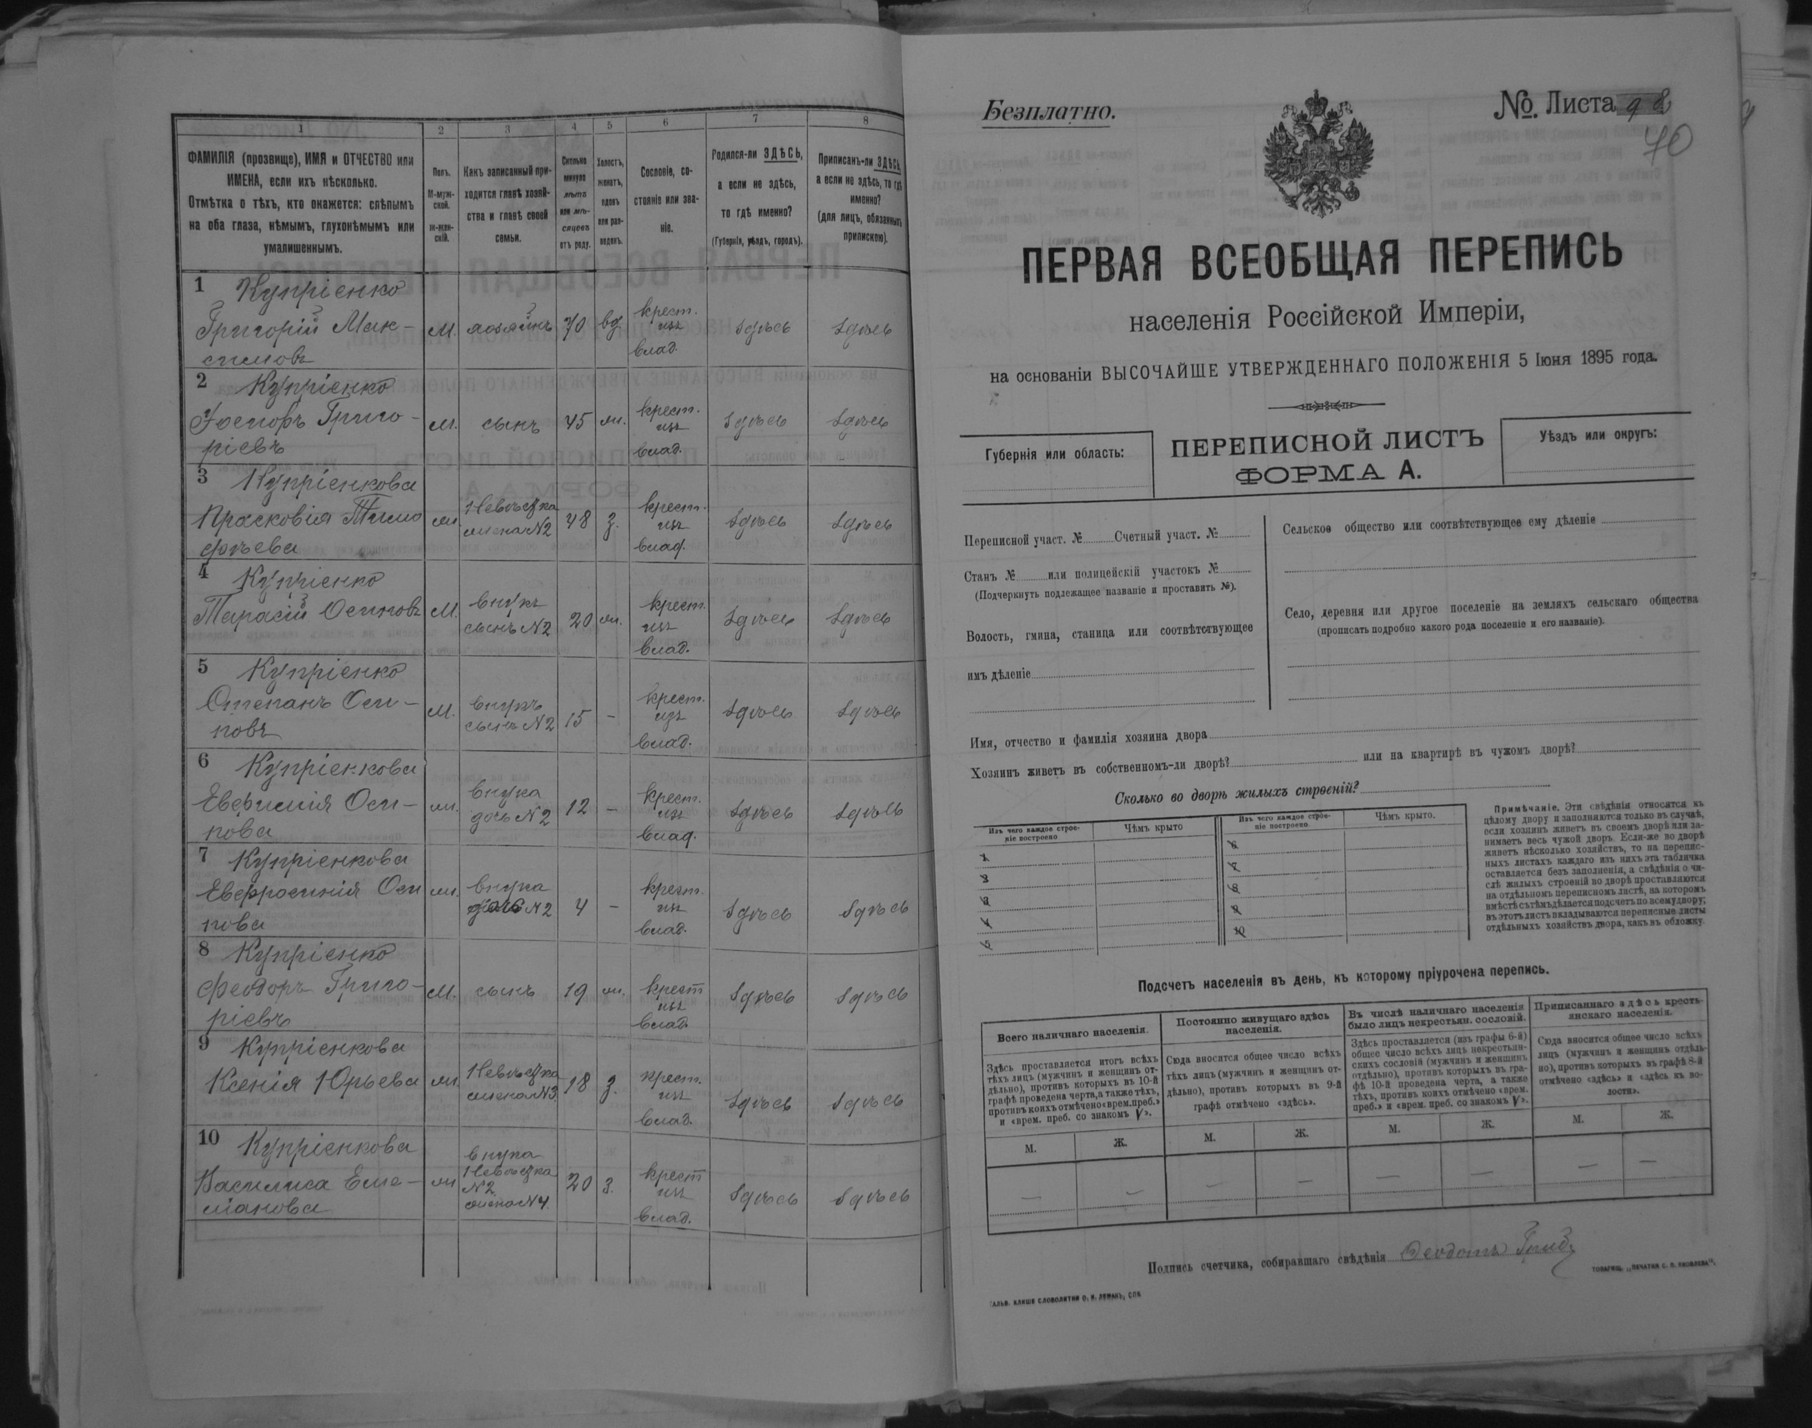 1 2 3 4 5 6 7 8
ФАМИЛІЯ (прозвище), ИМЯ и ОТЧЕСТВО или
ИМЕНА, если ихъ нѣсколько.
Отмѣтка о тѣхъ, кто окажется: слѣпымъ
на оба глаза, нѣмымъ, глухонѣмымъ или
умалишеннымъ.
Полъ.
М-муж-
ской.
Ж-жен-
скій.
Какъ записанный при-
ходится главѣ хозяй-
ства и главѣ своей
семьи.
Сколько
минуло
лѣтъ
или мѣ-
сяцевъ
отъ роду.
Холостъ,
женатъ,
вдовъ
или раз-
веденъ.
Сословіе, со-
стояніе или зва-
ніе.
Родился-ли ЗДѢСЬ,
а если не здѣсь,
то гдѣ именно?
(Губернія, уѣздъ, городъ).
Приписанъ-ли ЗДѢСЬ,
а если не здѣсь, то гдѣ
именно?
(для лицъ, обязанныхъ
припискою).
1 Купріенко
Григорій Мак-
симовъ
М. хозяинъ 70 вд
крест.
изъ
влад.
здѣсь здѣсь
2 Купріенко
Іосифъ Григо-
ріевъ
м. сынъ 45 ж.
крест.
изъ
влад.
здѣсь здѣсь
3 Купріенкова
Прасковія Тимо
фѣева
ж
Невѣстка
жена №2
48 з.
крест.
изъ
влад.
здѣсь здѣсь
4 Купріенко
Тарасій Осиповъ
М.
внукъ
сынъ №2
20 ж.
крест.
изъ
влад.
здѣсь здѣсь
5 Купріенко
Степанъ Оси-
повъ
М.
внукъ
сынъ №2
15 -
крест.
изъ
влад.
здѣсь здѣсь
6 Купріенкова
Евфимія Оси-
пова
ж.
внука
дочь №2
12 -
крест.
изъ
влад.
здѣсь здѣсь
7 Купріенкова
Евфросинія Оси
пова
ж.
внука
дочь №2
4 -
крест.
изъ
влад.
здѣсь здѣсь
8 Купріенко
Феодоръ Григо-
ріевъ
М. сынъ 19 ж.
крест
изъ
влад.
здѣсь здѣсь
9 Купріенкова
Ксенія Юрьева
ж.
Невѣстка
18 з.
крест.
изъ
влад.
здѣсь здѣсь
10 Купріенкова
Василиса Еме-
ліанова
ж
внука
Невѣстка
№2
жена №4.
20 з.
крест
изъ
влад.
здѣсь здѣсь
Безплатно.
№. Листа
40
ПЕРВАЯ ВСЕОБЩАЯ ПЕРЕПИСЬ
населенія Россійской Имперіи,
на основаніи ВЫСОЧАЙШЕ УТВЕРЖДЕННАГО ПОЛОЖЕНІЯ 5 Іюня 1895 года.
Губернія или область:
ПЕРЕПИСНОЙ ЛИСТЪ
ФОРМА А.
Уѣздъ или округъ:
Переписной участ. № Счетный участ. №
Станъ № или полицейскій участокъ №
(Подчеркнуть подлежащее названіе и проставить №).
Волость, гмина, станица или соотвѣтствующее
имъ дѣленіе
Сельское общество или соотвѣтствующее ему дѣленіе
Село, деревня или другое поселеніе на земляхъ сельскаго общества
(прописать подробно какого рода поселеніе и его названіе).
Имя, отчество и фамилія хозяина двора
Хозяинъ живетъ въ собственномъ-ли дворѣ? или на квартирѣ въ чужомъ дворѣ?
Сколько во дворѣ жилыхъ строеній?
Изъ чего каждое строе-
ніе построено
Чѣмъ крыто
Изъ чего каждое строе-
ніе построено
Чѣмъ крыто.
1 6
2 7
3 8
4 9
5 10
Примѣчаніе. Эти свѣдѣнія относятся къ
цѣлому двору и заполняются только въ случаѣ,
если хозяинъ живетъ въ своемъ дворѣ или за-
нимаетъ весь чужой дворъ. Если-же во дворѣ
живетъ нѣсколько хозяйствъ, то на перепис-
ныхъ листахъ каждаго изъ нихъ эта табличка
оставляется безъ заполненія, а свѣдѣнія о чи-
слѣ жилыхъ строеній во дворѣ проставляются
на отдѣльномъ переписномъ листѣ, на которомъ
вмѣстѣ съ тѣмъ дѣлается подсчетъ по всему двору;
въ этотъ листъ вкладываются переписные листы
отдѣльныхъ хозяйствъ двора, какъ въ обложку.
Подсчетъ населенія въ день, къ которому пріурочена перепись.
Всего наличнаго населенія.
Здѣсь проставляется итогъ всѣхъ
тѣхъ лицъ (мужчинъ и женщинъ от-
дѣльно), противъ которыхъ въ 10-й
графѣ проведена черта, а также тѣхъ,
противъ коихъ отмѣчено «врем. преб.»
и «врем. преб. со знакомъ V».
Постоянно живущаго здѣсь
населенія.
Сюда вносится общее число всѣхъ
тѣхъ лицъ (мужчинъ и женщинъ от-
дѣльно), противъ которыхъ въ 9-й
графѣ отмѣчено «здѣсь».
Въ числѣ наличнаго населенія
было лицъ некрестьян. сословій.
Здѣсь проставляется (изъ графы 6-й)
общее число всѣхъ лицъ некрестьян-
скихъ сословій (мужчинъ и женщинъ
отдѣльно), противъ которыхъ въ гра-
фѣ 10-й проведена черта, а также
тѣхъ, противъ коихъ отмѣчено «врем.
преб.» и «врем. преб. со знакомъ V».
Приписаннаго здѣсь кресть-
янскаго населенія.
Сюда вносится общее число всѣхъ
лицъ (мужчинъ и женщинъ отдѣль-
но), противъ которыхъ въ графѣ 8-й
отмѣчено «здѣсь» и «здѣсь въ во-
лости».
М. Ж. М. Ж. М. Ж. М. Ж.
— — — — — — — —
Подпись счетчика, собиравшаго свѣдѣнія Феодотъ
ТОВАРИЩ. „ПЕЧАТНЯ С. П. ЯКОВЛЕВА".
ГАЛЬВ. КЛИШЕ СЛОВОЛИТНИ О. И. ЛЕМАНЪ, СПБ